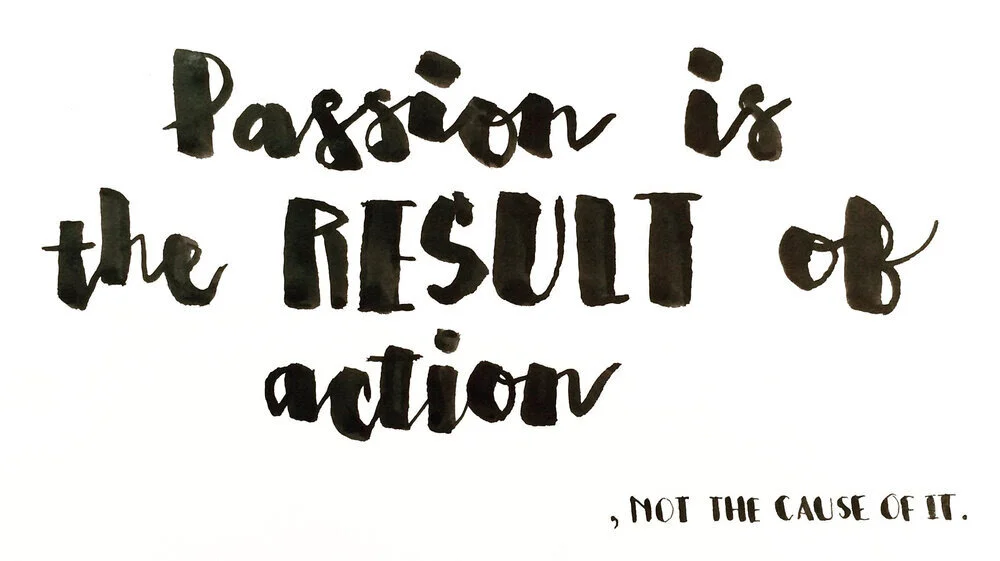 Passion is
the RESULT of
action
, NOT THE CAUSE OF IT.